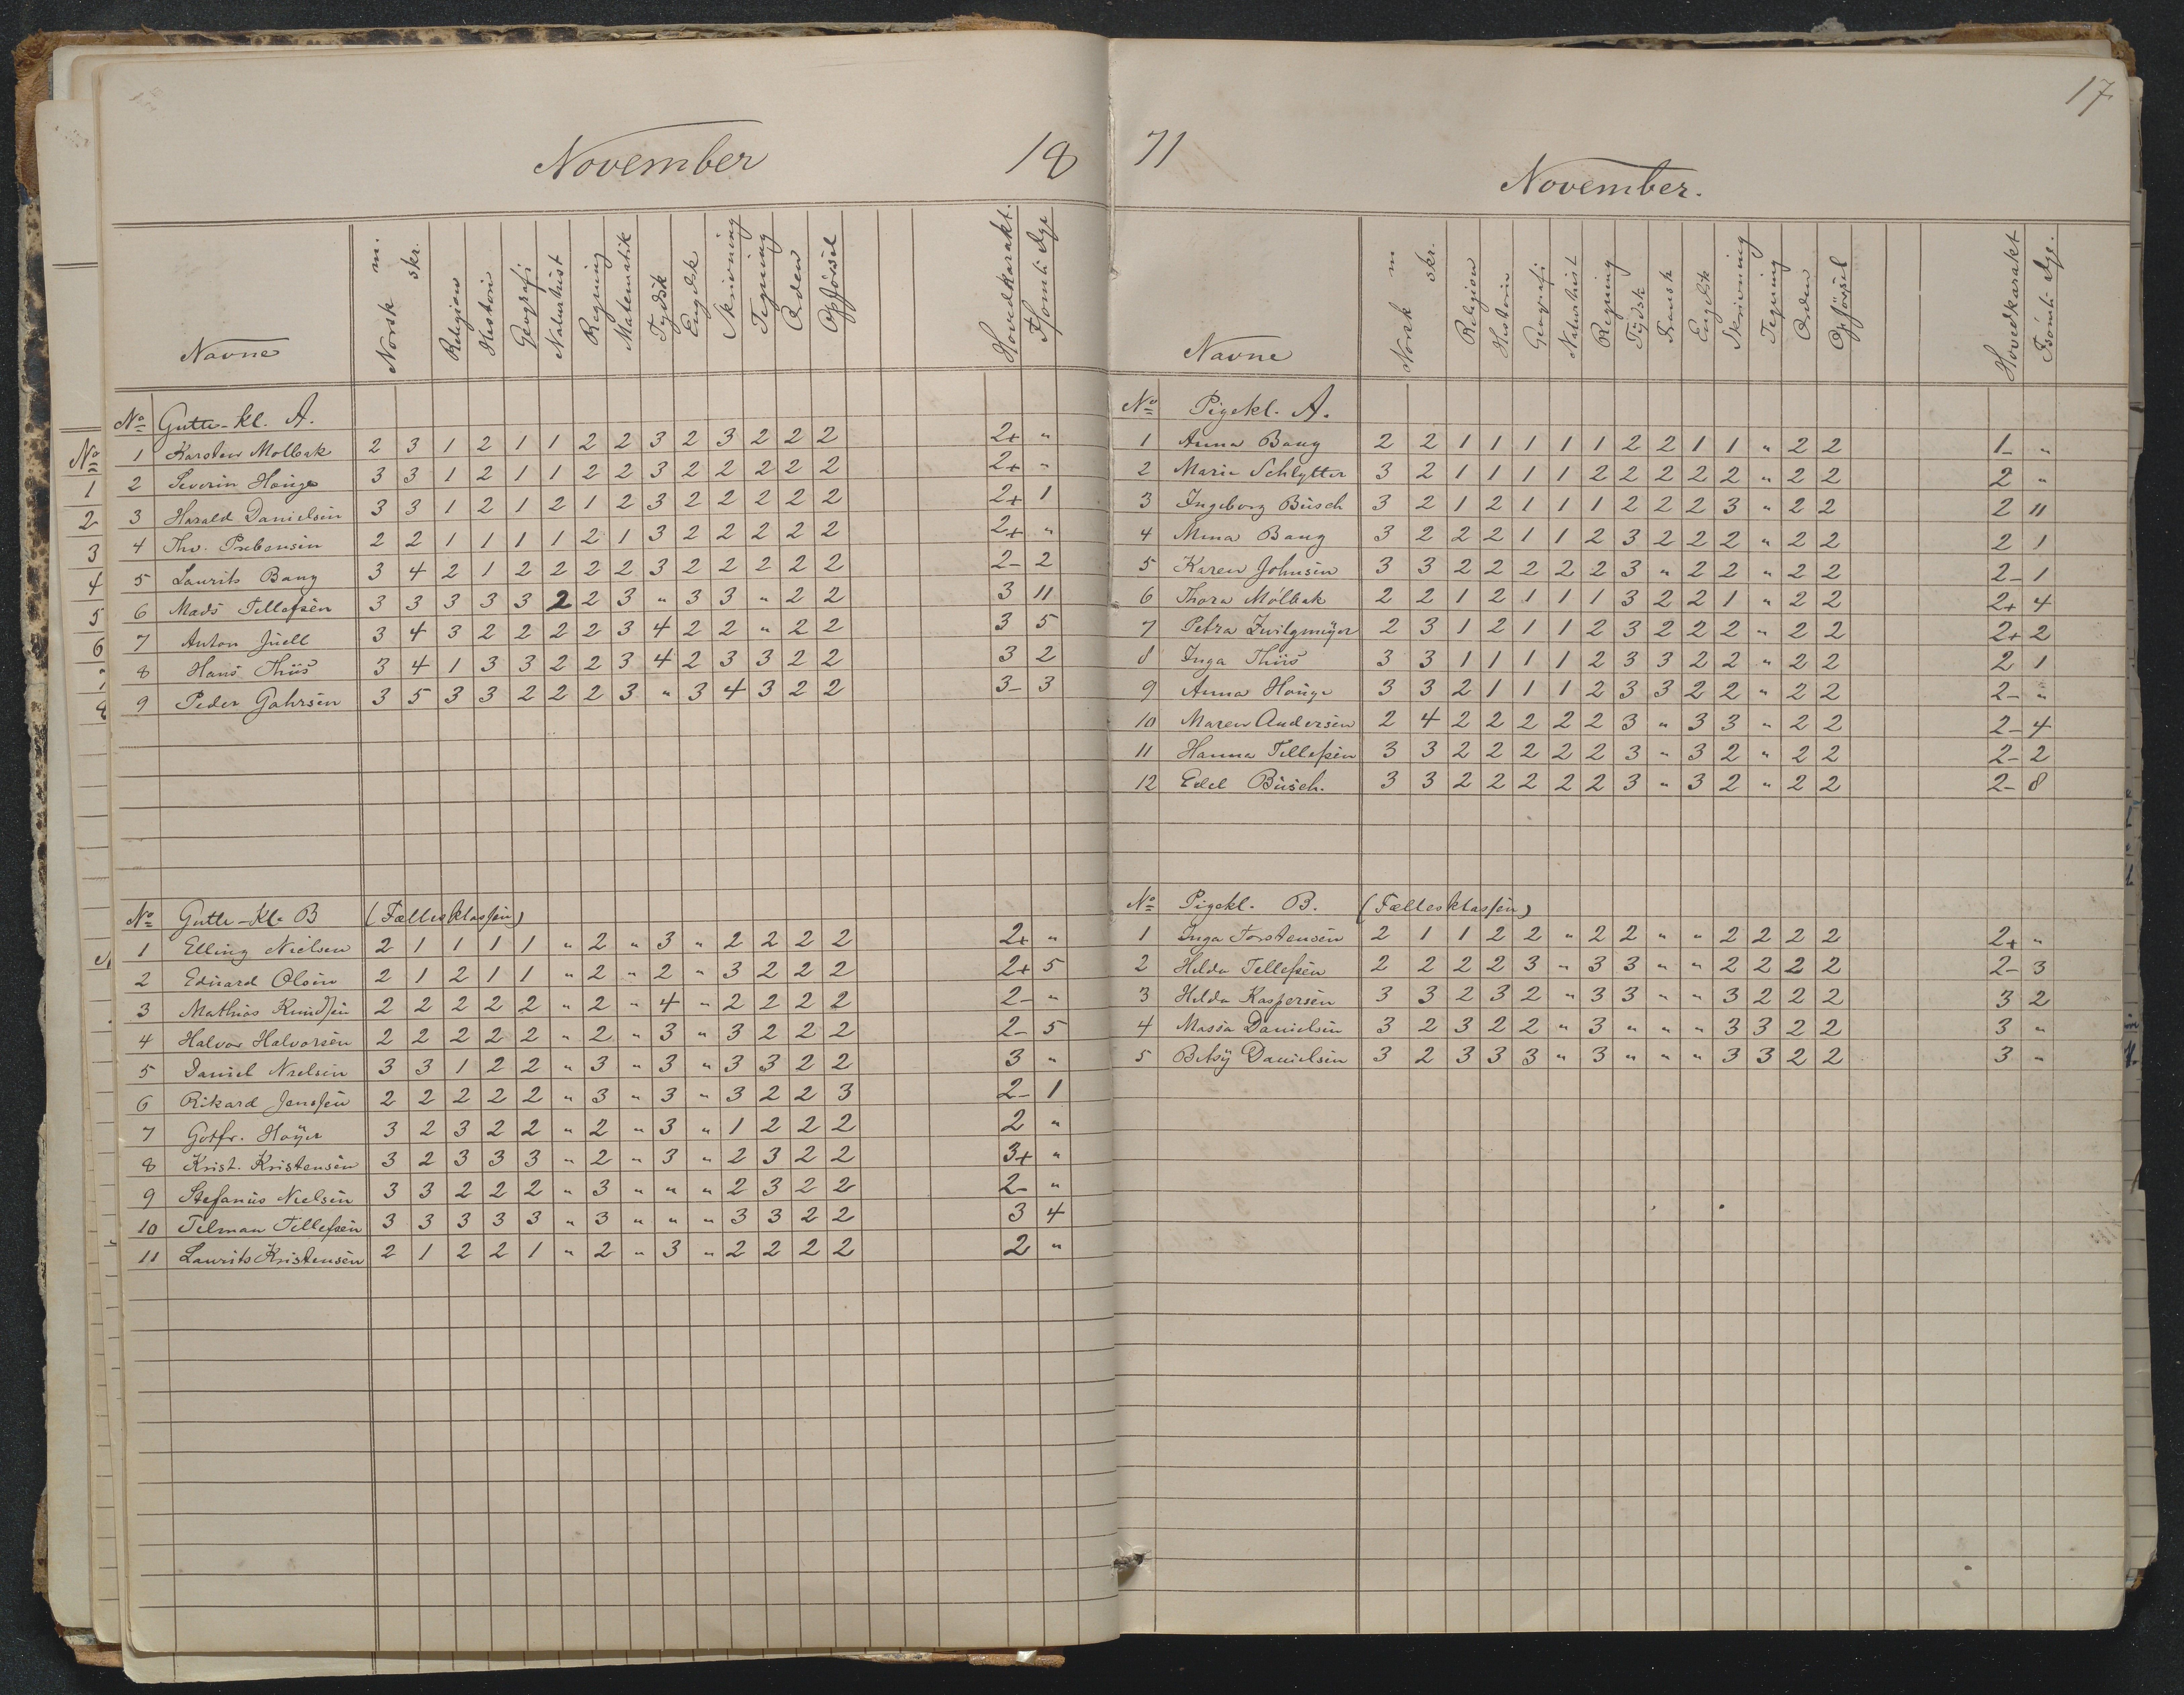 November 18
Navne Norsk m. skr. Religion Historie Geografi Naturhist Regning Matematik Tydsk Engelsk Skrivning Tegning Orden Opförsel Hovedkarakt. Fsömte Dge
No Gutte-Kl. A.
1 Karsten Molbak 2 3 1 2 1 1 2 2 3 2 3 2 2 2 2+ "
2 Severin Houge 3 3 1 2 1 1 2 2 3 2 2 2 2 2 2+ "
3 Harald Danielsen 3 3 1 2 1 2 1 2 3 2 2 2 2 2 2+ 1
4 Thv. Prebensen 2 2 1 1 1 1 2 1 3 2 2 2 2 2 2+ "
5 Laurits Bang 3 4 2 1 2 2 2 2 3 2 2 2 2 2 2- 2
6 Mads Tellefsen 3 3 3 3 3 2 2 3 " 3 3 " 2 2 3 11
7 Anton Juell 3 4 3 2 2 2 2 3 4 2 2 " 2 2 3 5
8 Hans Thiis 3 4 1 3 3 2 2 3 4 2 3 3 2 2 3 2
9 Peder Gahrsen 3 5 3 3 2 2 2 3 " 3 4 3 2 2 3- 3
No Gutte-Kl. B (Fællesklassen)
1 Elling Nielsen 2 1 1 1 1 " 2 " 3 " 2 2 2 2 2+ "
2 Eduard Olsen 2 1 2 1 1 " 2 " 2 " 3 2 2 2 2+ 5
3 Mathias Knudsen 2 2 2 2 2 " 2 " 4 " 2 2 2 2 2- "
4 Halvor Halvorsen 2 2 2 2 2 " 2 " 3 " 3 2 2 2 2- 5
5 Daniel Nielsen 3 3 1 2 2 " 3 " 3 " 3 3 2 2 3 "
6 Rikard Jenssen 2 2 2 2 2 " 3 " 3 " 3 2 2 3 2- 1
7 Gotfr. Høyer 3 2 3 2 2 " 2 " 3 " 1 2 2 2 2 "
8 Krist. Kristensen 3 2 3 3 3 " 2 " 3 " 2 3 2 2 3+ "
9 Stefanus Nielsen 3 3 2 2 2 " 3 " " " 2 3 2 2 2- "
10 Telman Tellefsen 3 3 3 3 3 " 3 " " " 3 3 2 2 3 4
11 Laurits Kristensen 2 1 2 2 1 " 2 " 3 " 2 2 2 2 2 "
17
71 November.
Navne Norsk m skr. Religion Historie Geografi Naturhist Regning Tydsk Fransk Engelsk Skrivning Tegning Orden Opförsel Hovedkarakt Fsömte Dge.
No Pigekl. A.
1 Anna Bang 2 2 1 1 1 1 1 2 2 1 1 " 2 2 1- "
2 Marie Schlytter 3 2 1 1 1 1 2 2 2 2 2 " 2 2 2 "
3 Ingeborg Busch 3 2 1 2 1 1 1 2 2 2 3 " 2 2 2 11
4 Mina Bang 3 2 2 2 1 1 2 3 2 2 2 " 2 2 2 1
5 Karen Johnsen 3 3 2 2 2 2 2 3 " 2 2 " 2 2 2- 1
6 Thora Mölbak 2 2 1 2 1 1 1 3 2 2 1 " 2 2 2+ 4
7 Petra Zwilgmeyer 2 3 1 2 1 1 2 3 2 2 2 " 2 2 2+ 2
8 Inga Thiis 3 3 1 1 1 1 2 3 3 2 2 " 2 2 2 1
9 Anna Houge 3 3 2 1 1 1 2 3 3 2 2 " 2 2 2- "
10 Maren Andersen 2 4 2 2 2 2 2 3 " 3 3 " 2 2 2- 4
11 Hanna Tellefsen 3 3 2 2 2 2 2 3 " 3 2 " 2 2 2- 2
12 Edel Busch. 3 3 2 2 2 2 2 3 " 3 2 " 2 2 2- 8
No Pigekl. B. (Fællesklassen)
1 Inga Torstensen 2 1 1 2 2 " 2 2 " " 2 2 2 2 2+ "
2 Helda Tellefsen 2 2 2 2 3 " 3 3 " " 2 2 2 2 2- 3
3 Helda Kaspersen 3 3 2 3 2 " 3 3 " " 3 2 2 2 3 2
4 Massa Danielsen 3 2 3 2 2 " 3 " " " 3 3 2 2 3 "
5 Betsy Danielsen 3 2 3 3 3 " 3 " " " 3 3 2 2 3 "
No
1
2
3
4
5
6